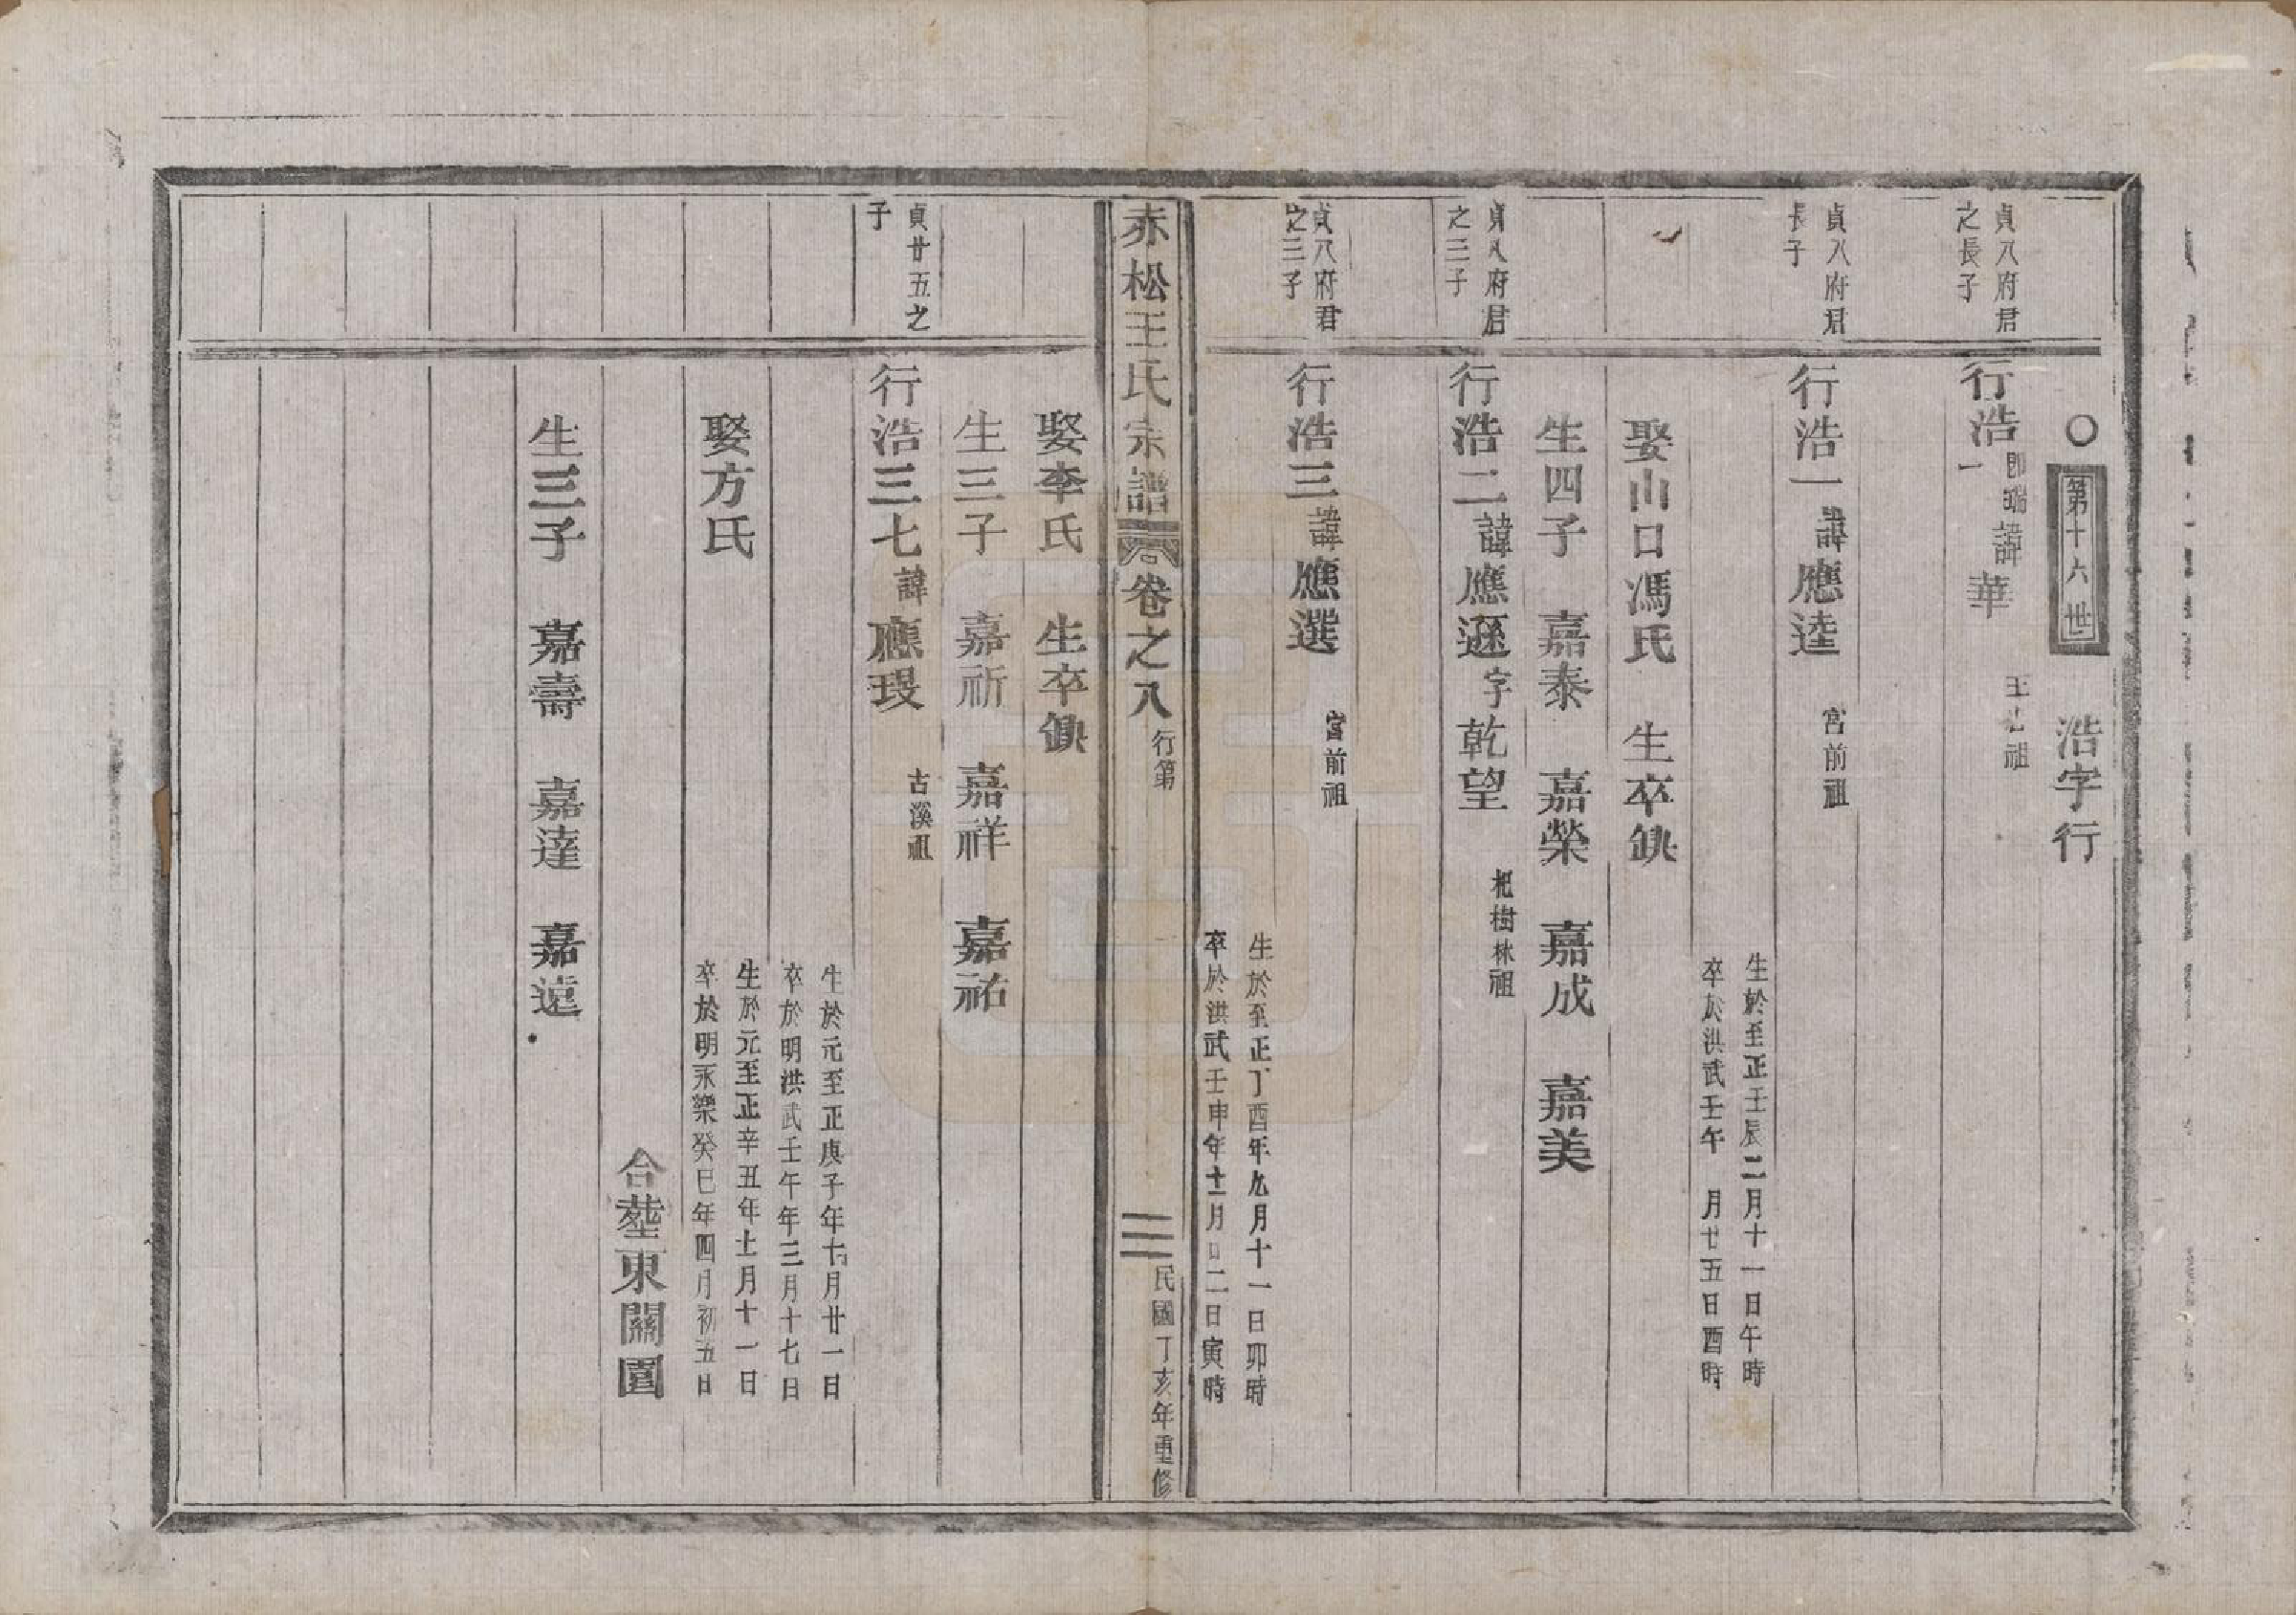 ○ 第十六世 浩字行
貞八府君之長子
行浩一 即瑞 諱華 祖
貞八府君長子
行浩一 諱應逵 宮前祖
生於至正壬辰二月十一日午時
卒於洪武壬午 月廿五日酉時
娶山口馮氏 生卒缺
生四子 嘉泰 嘉榮 嘉成 嘉美
貞八府君之三子
行浩二 諱應遜 字乾望 杷樹林祖
貞八府君之三子
行浩三 諱應選 宮前祖
生於至正丁酉年九月十一日卯時
卒於洪武壬申年十二月 二日寅時
赤松王氏宗譜 卷之八 行第 三 民國丁亥年重修
娶李氏 生卒缺
生三子 嘉祈 嘉祥 嘉祐
貞廿五之子
行浩三七 諱應瑕 古溪祖
生於元至正庚子年十月廿一日
卒於明洪武壬午年三月十七日
娶方氏
生於元至正辛丑年十一月十一日
卒於明永樂癸巳年四月初五日
合塟東關園
生三子 嘉壽 嘉達 嘉遠